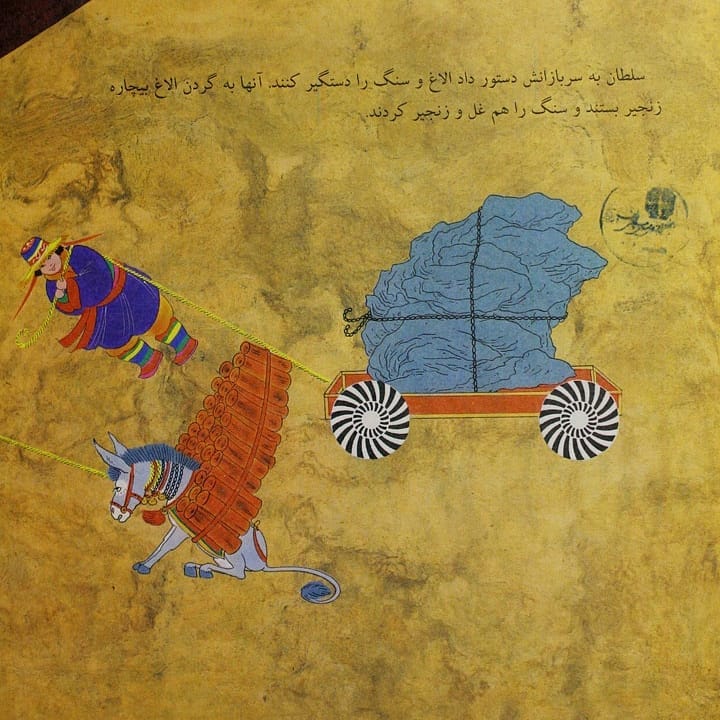 سلطان به سربازانش دستور داد الاغ و سنگ را دستگیر کنند. آنها به گردن الاغ بیچاره
زنجیر بستند و سنگ را هم غل و زنجیر کردند.